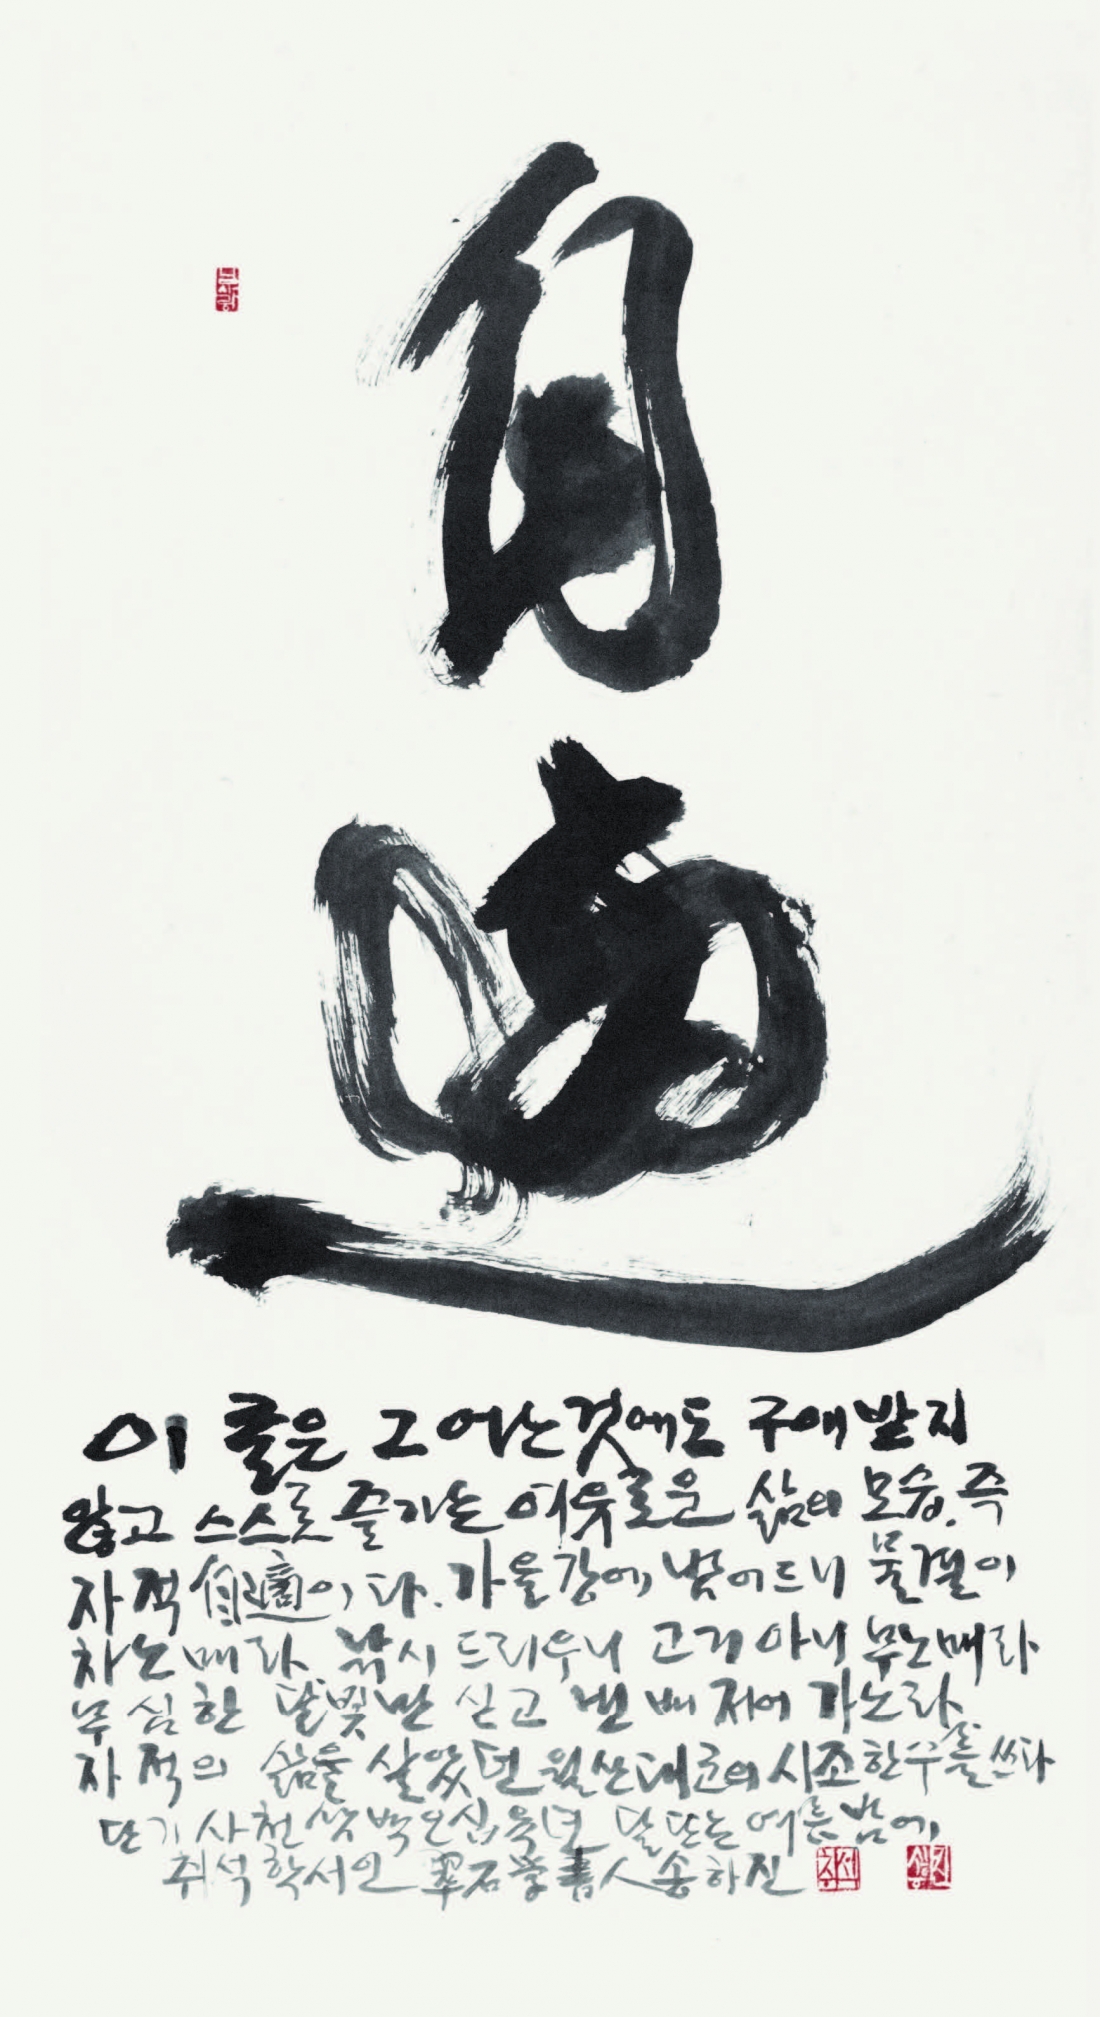 自
適
이 글은 그 어느것에도 구애받지
않고 스스로 즐기는 여유로운 삶의 모습, 즉
자적 自適이다. 가을강에 밤이드니 물결이
차노매라 낚시 드리우니 고기 아니 무노매라
무심한 달빛만 싣고 빈 배 저어 가노라
자적의 삶을 살았던 월산대군의 시조한수를 쓰다
단기 사천삼백오십육년 달뜨는 여름밤에
취석 학서인 翠石學書人 송하진